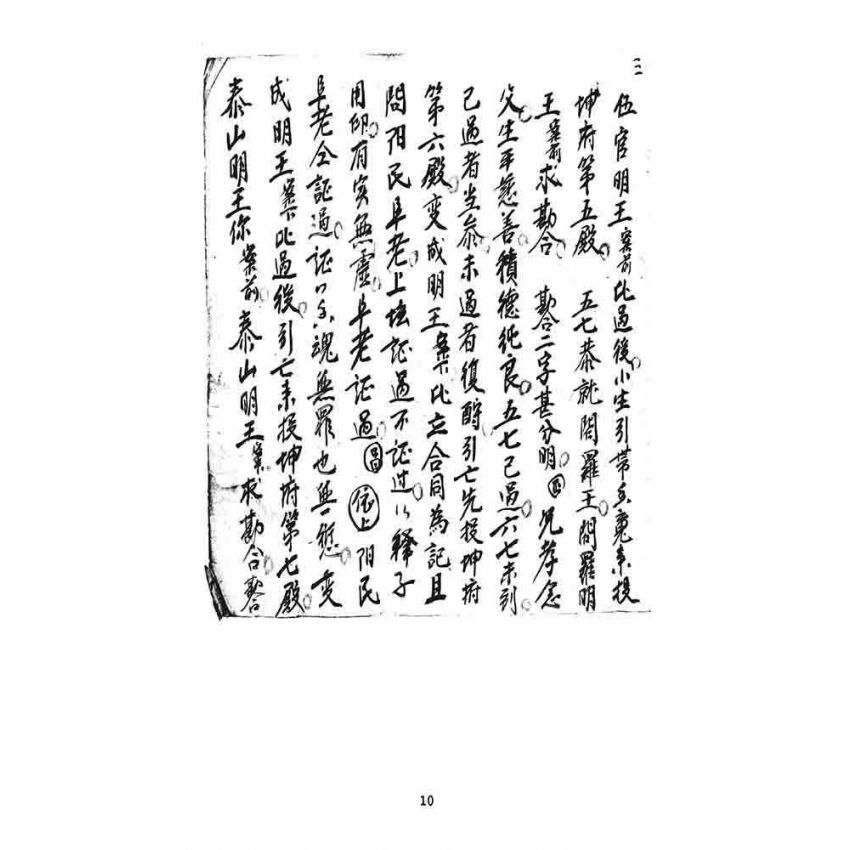 三
伍官明王案前比過後小生引帶亡魂来投
坤府第五殿 五七恭就閻羅王閻羅明
王案前求勘合 勘合二字甚分明 兄孝念
父生平慈善積德純良五七已過六七未到
已過者当参未過者復酹引亡先投坤府
第六殿变成明王案下比立合同為記且
問阳民阜老上坛証過不証过以釋子
用印有实無虚阜老証過 依上 阳民
阜老仝証過証口亡魂無罪也無愆变
成明王案下比過後引亡来投坤府第七殿
泰山明王你案前泰山明王案求勘合勘合
10